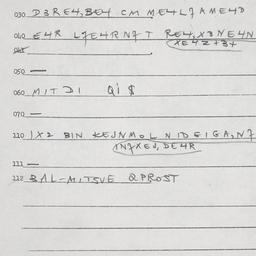 030 D3RE4,BE4 CM ME4L7AME4D
040 E4R L7E4RN7T RE4,X3NE4N
XE4Z+3+
050 —
060 MITDI QI$
070 —
110 1X2 BIN KEJNMOL NIDEIGA,N7
IN7XEJ,DE4R
111 —
112 BAL-MITSVE QPROST